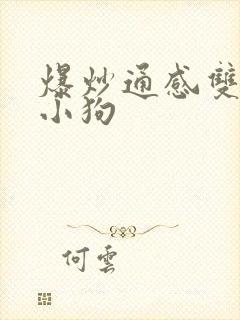 爆炒通感雙
小狗
何雲